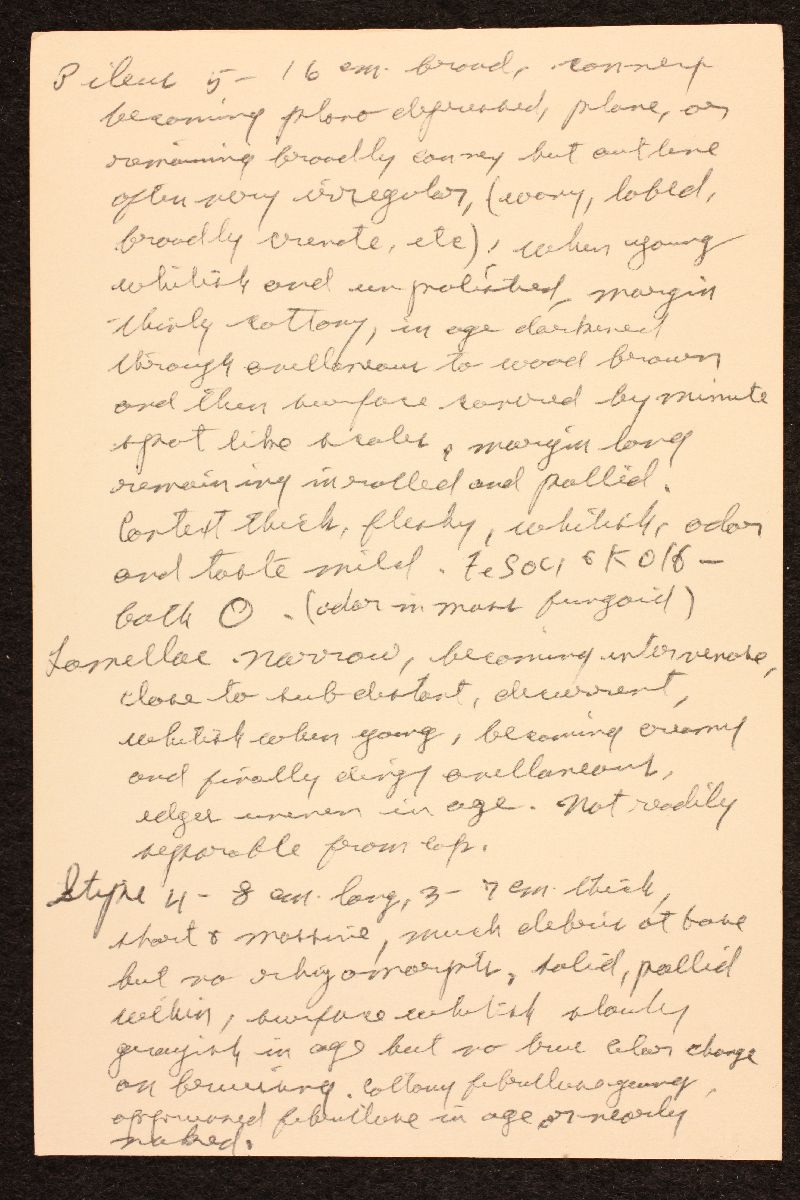 Pileus 5 - 16 cm. broad, convex
becoming plano depressed, plane, or
remaining broadly convex but outline
often very irregular, (wavy, lobed,
broadly crenate, etc); when young
whitish and unpolished, margin
thinly cottony, in age darkened
through avellaneous to wood brown
and then surface covered by minute
spot like scales, margin long
remaining inrolled and pallid.
Context thick, fleshy, whitish, odor
and taste mild. FeSO4, & KOH -
both O. (odor in mass fungoid)
Lamellae narrow, becoming intervenose,
close to subdistant, decurrent,
whitish when young, becoming creamy
and finally dingy avellaneous,
edges uneven in age. Not readily
separable from cap.
Stipe 4 - 8 cm. long, 3 - 7 cm. thick,
short & massive, much debris at base
but no rhizomorphs, solid, pallid
within, surface whitish slowly
grayish in age but no true color change
on bruising. Cottony fibrillose young,
appressed fibrillose in age or nearly
naked.